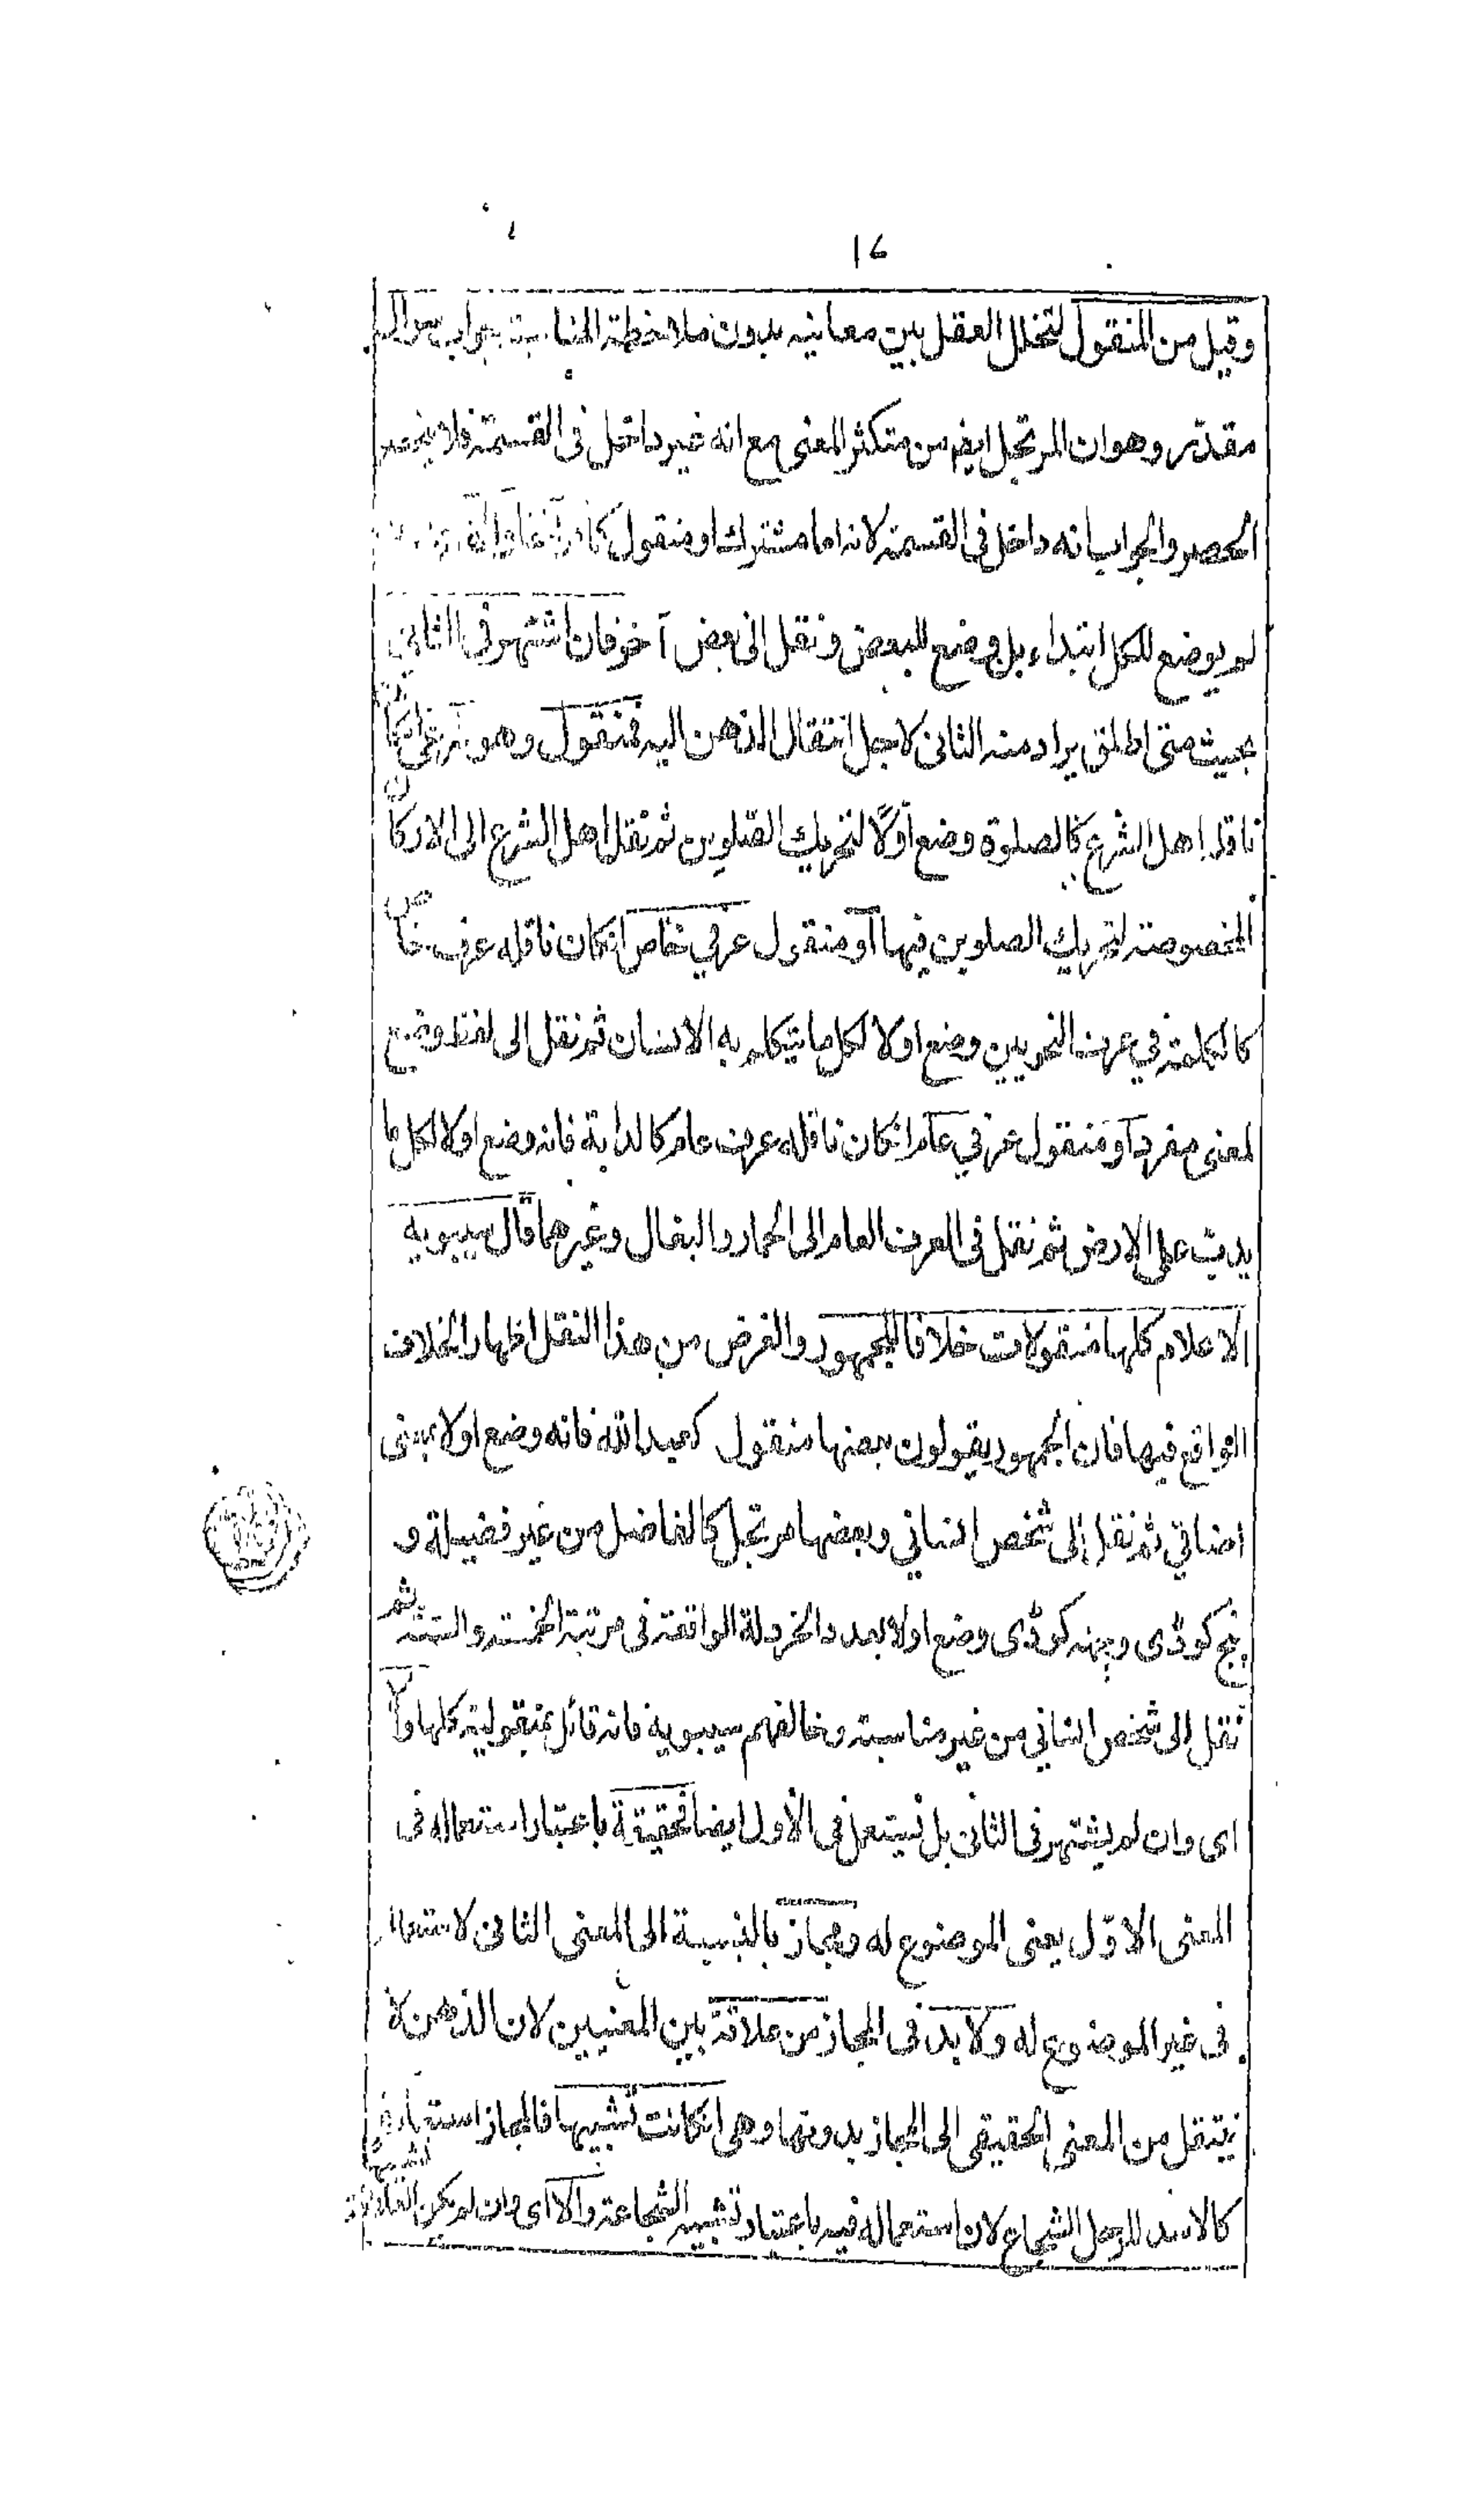 ١٦
وقيل من المنقول لتخلل العقل بين معانيه بدون ملاحظة المناسبة جواب سوال
مقدر وهو ان المرتجل ايضا من متكثر المعنى مع انه غير داخل فى القسمة فلا ينحصر
الحصر والجواب انه داخل فى القسمة لانه اما مشترك او منقول
لم يوضع للكل ابتداء بل وضع للبعض ونقل الى بعض آخر فان اشتهر فى الثانى
بحيث متى اطلق يراد منه الثانى لاجل انتقال الذهن اليه فمنقول وهو شرعى انكان
ناقله اهل الشرع كالصلوة وضع اولًا لتحريك الصلوين ثم نقل اهل الشرع الى الاركان
المخصوصة لتحريك الصلوين فيها او منقول عرفي خاص انكان ناقله عرف خاص
كالكلمة في عرف النحويين وضع اولا لكل ما يتكلم به الانسان ثم نقل الى لفظ وضع
لمعنى مفرد او منقول عرفي عام انكان ناقله عرف عام كالدابة فانه وضع اولا لكل ما
يدبّ على الارض ثم نقل فى العرف العام الى الحمار والبغال وغيرهما قال سيبويه
الاعلام كلها منقولات خلافا للجمهور والغرض من هذا النقل اظهار الخلاف
الواقع فيها فان الجمهور يقولون بعضها منقول كعبد الله فانه وضع اولا بمعنى
اضافي ثم نقل الى شخص انساني وبعضها مرتجل كالفاضل من غير فضيلة و
پنج كوڈى وچهه كوڈى وضع اولا بعدد الخردلة الواقعة فى مرتبة الخمسة والستة ثم
نقل الى شخص انساني من غير مناسبة وخالفهم سيبويه فانه قائل بمنقولية كلها والّا
اى وان لم يشتهر فى الثانى بل يستعمل فى الاول ايضا فحقيقة باعتبار استعماله فى
المعنى الاوّل يعنى الموضوع له ومجاز بالنسبة الى المعنى الثانى لاستعماله
فى غير الموضوع له ولا بد فى المجاز من علاقة بين المعنيين لان الذهن لا
ينتقل من المعنى الحقيقى الى المجاز بدونها وهى انكانت تشبيها فالمجاز استعارة
كالاسد للرجل الشجاع لان استعماله فيه باعتبار تشبيه الشجاعة والا اى وان لم يكن العلاقة تشبيهًا